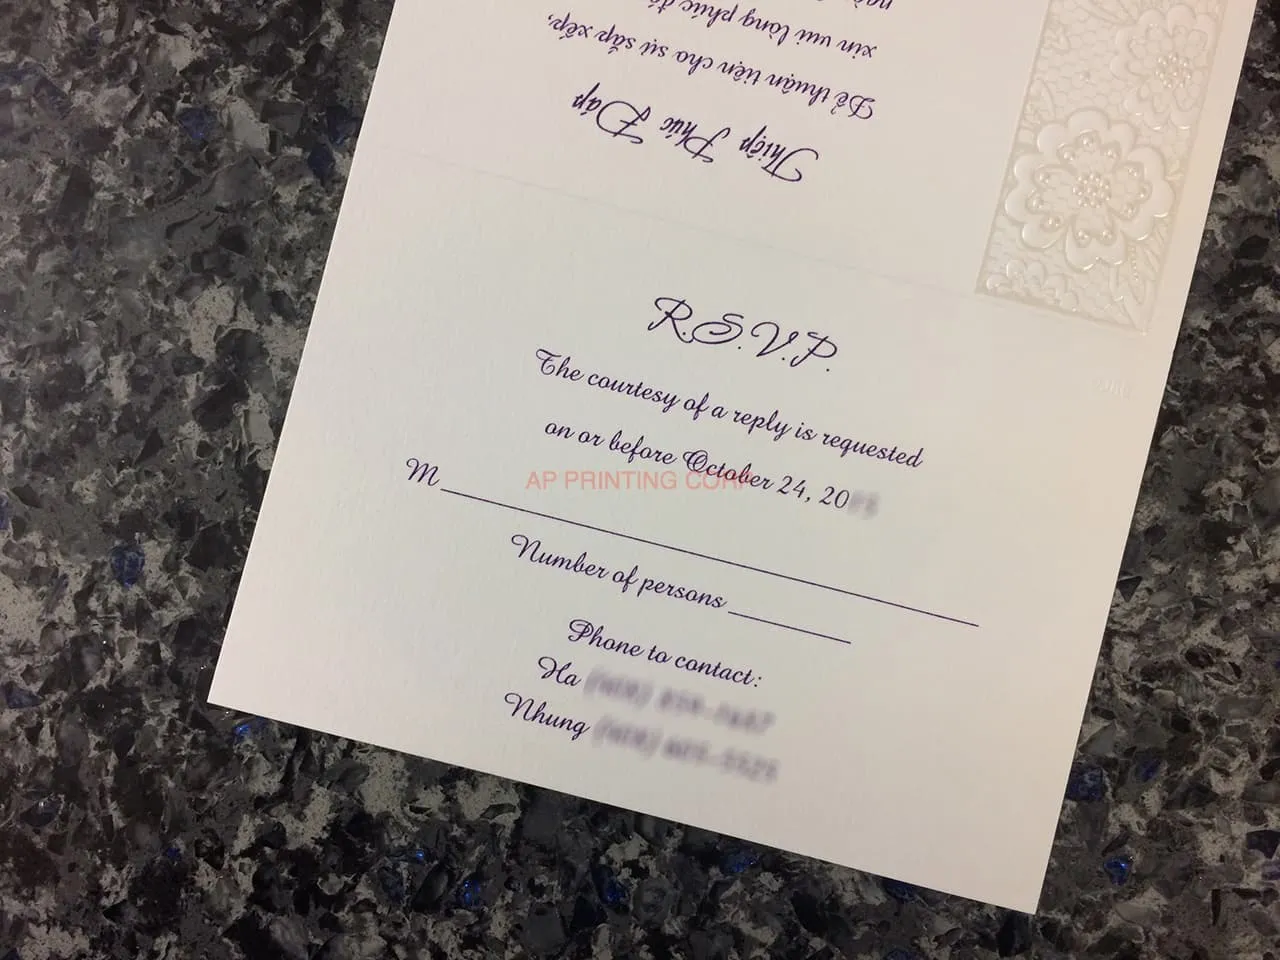 Thiệp Phúc Đáp
Để thuận tiện cho sự sắp xếp,
xin vui lòng phúc đá
R.S.V.P.
The courtesy of a reply is requested
on or before October 24, 20
M
Number of persons
Phone to contact:
Ha
Nhung
AP PRINTING CORP